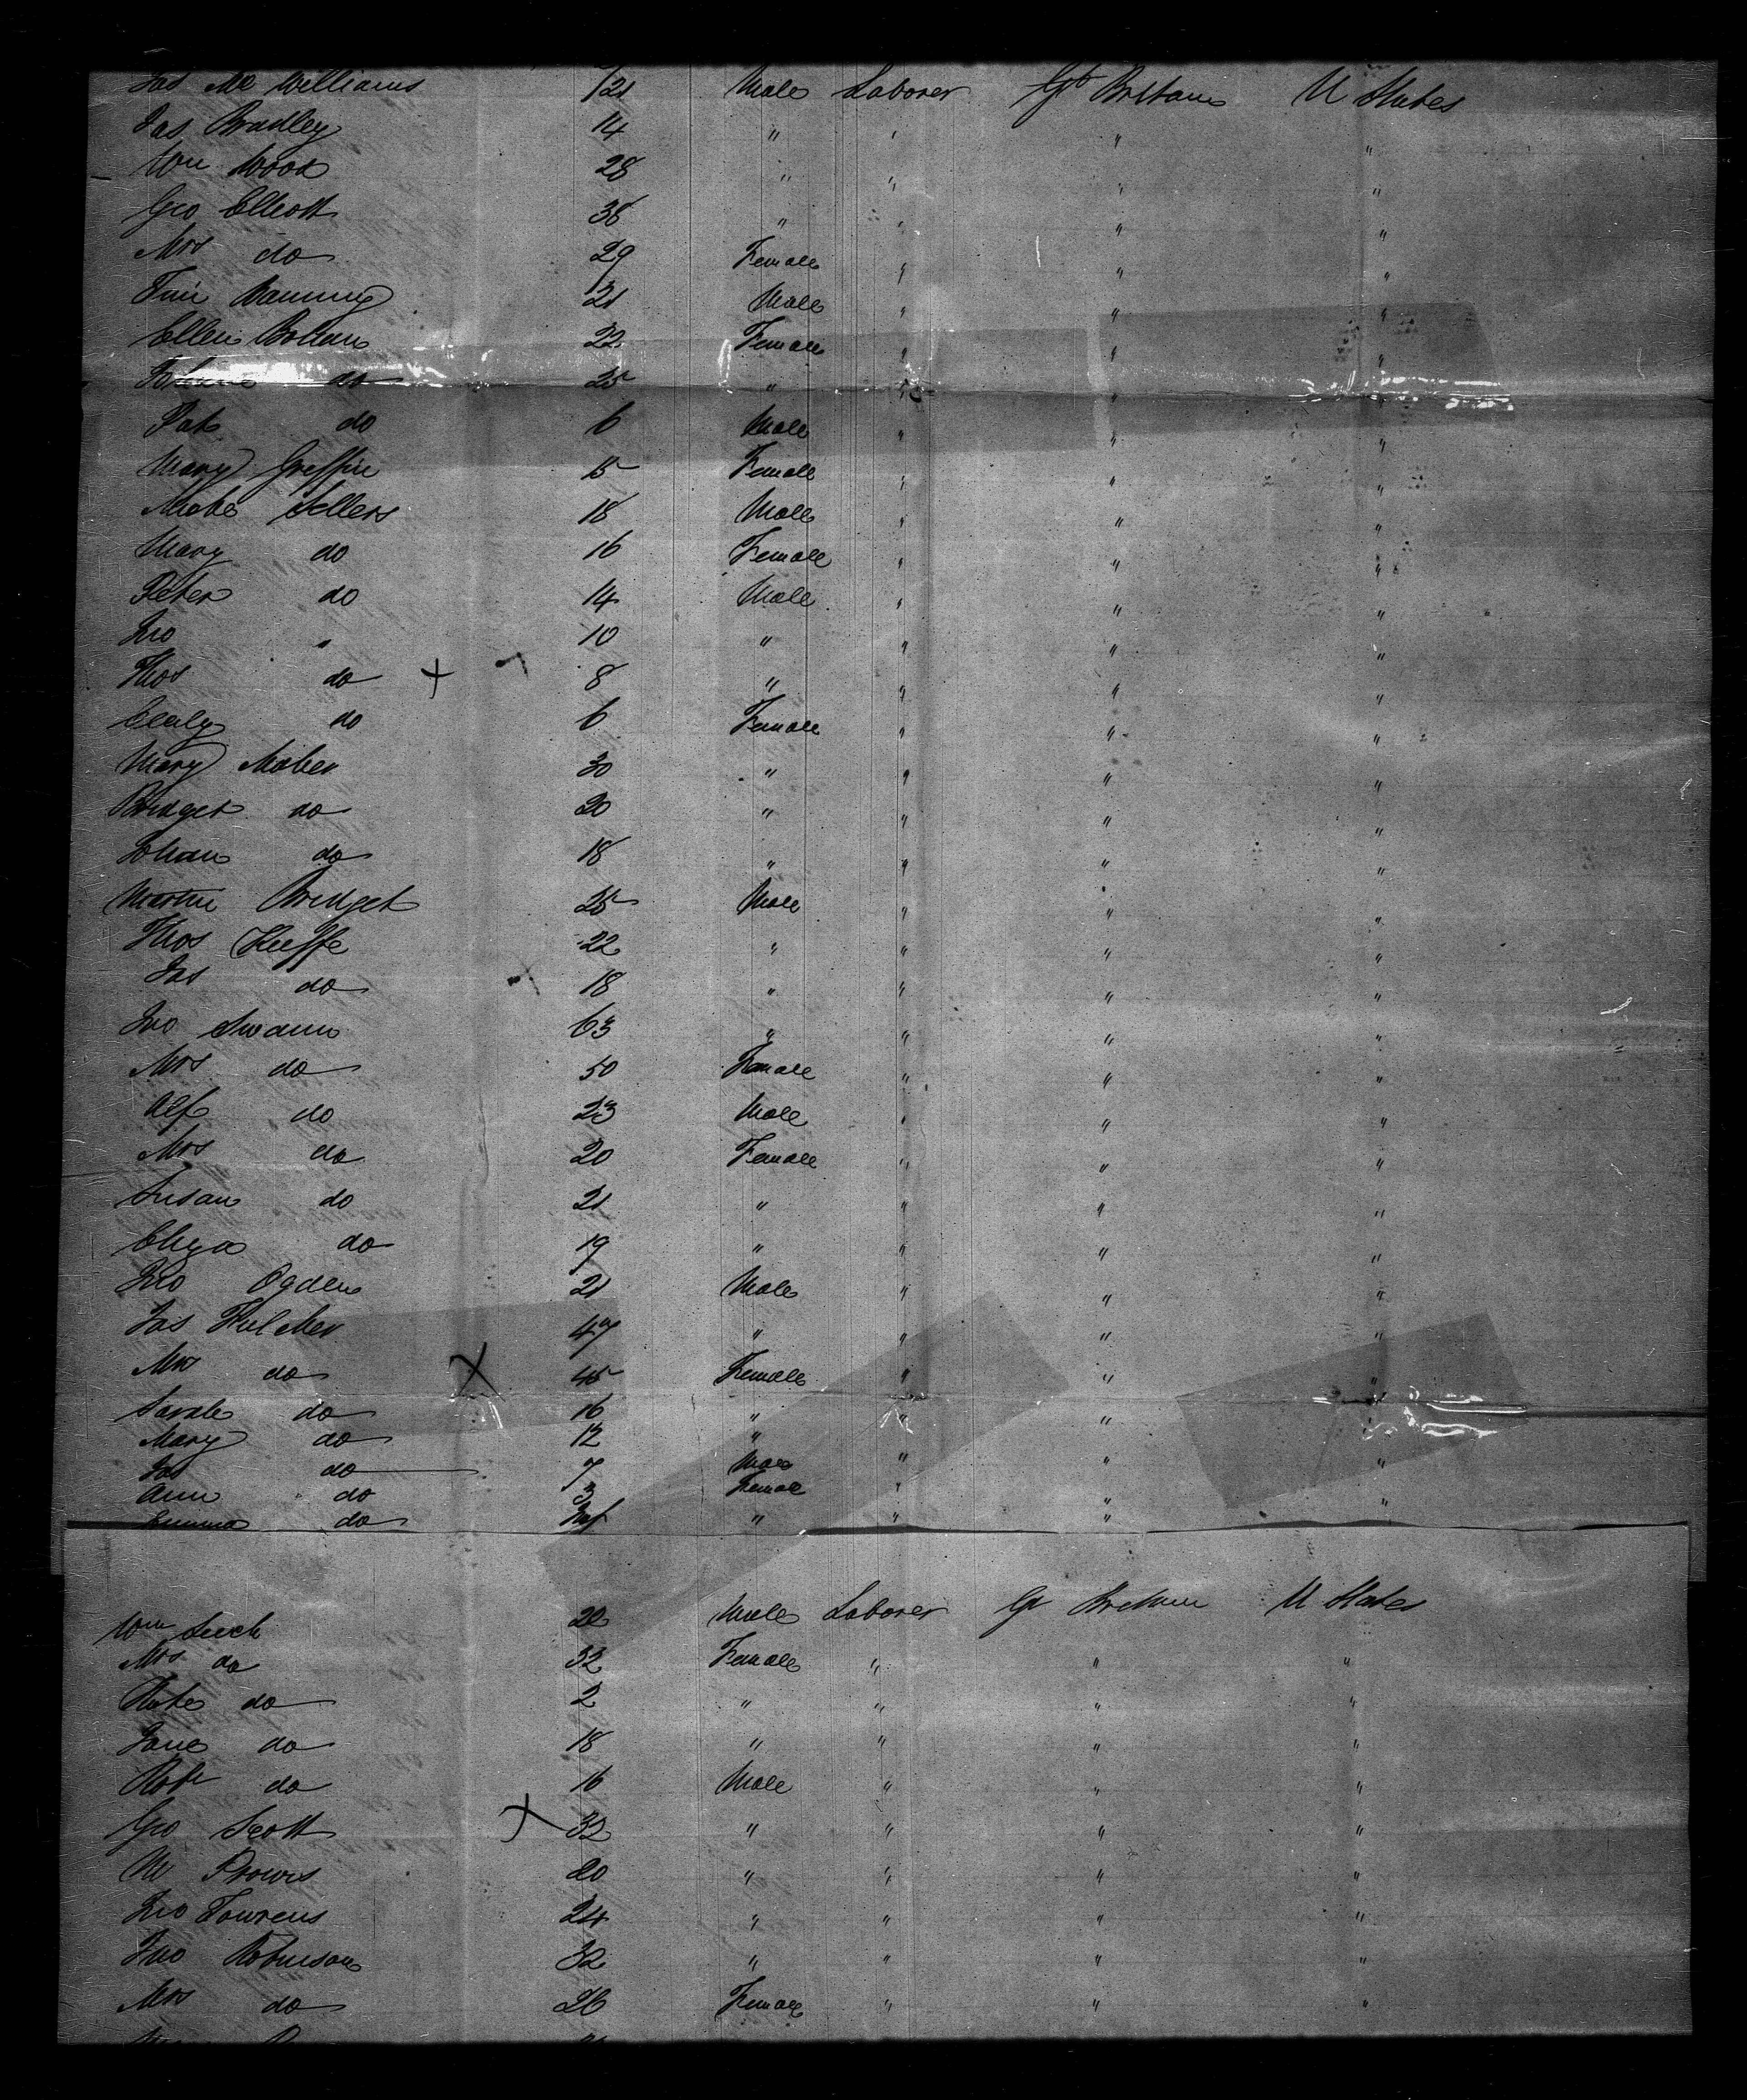 Jas Mc Williams 21 Male Laborer Gt Britain U States
Jas Bradley 14 " " " "
Wm Wood 28 " " " "
Geo Elliott 38 " " " "
Mrs do 29 Female " " "
Tim Banning 21 Male " " "
Ellen Bohan 22 Female " " "
do 25 " " " "
Pat do 6 Male " " "
Mary Greffin 15 Female " " "
Sellers 18 Male " " "
Mary do 16 Female " " "
Peter do 14 Male " " "
Jno " 10 " " " "
Thos do + 8 " " " "
do 6 Female " " "
Mary Maher 30 " " " "
Bridget do 20 " " " "
Johan do 18 " " " "
Martin Bridget 25 Male " " "
Thos Keeffe 22 " " " "
Jas do 18 " " " "
Jno Swann 63 " " " "
Mrs do 50 Female " " "
Alf do 23 Male " " "
Mrs do 20 Female " " "
Susan do 21 " " " "
Eliza do 19 " " " "
Jno Ogden 21 Male " " "
Jas 47 " " " "
Mrs do X 45 Female " " "
Sarah do 16 " " "
Mary do 12 "
Jas do 7 Male " " "
Ann do 3 Female " " "
Emma do Inf " " "
Wm 20 Male Laborer Gt Britain U States
Mrs do 32 Female " " "
Kate do 2 " " " "
Jane do 18 " " " "
Robt do 16 Male " " "
Geo Scott X 32 " " " "
W 20 " " " "
Jno 24 " " " "
Jno Robinson 32 " " " "
Mrs do 26 Female " " "